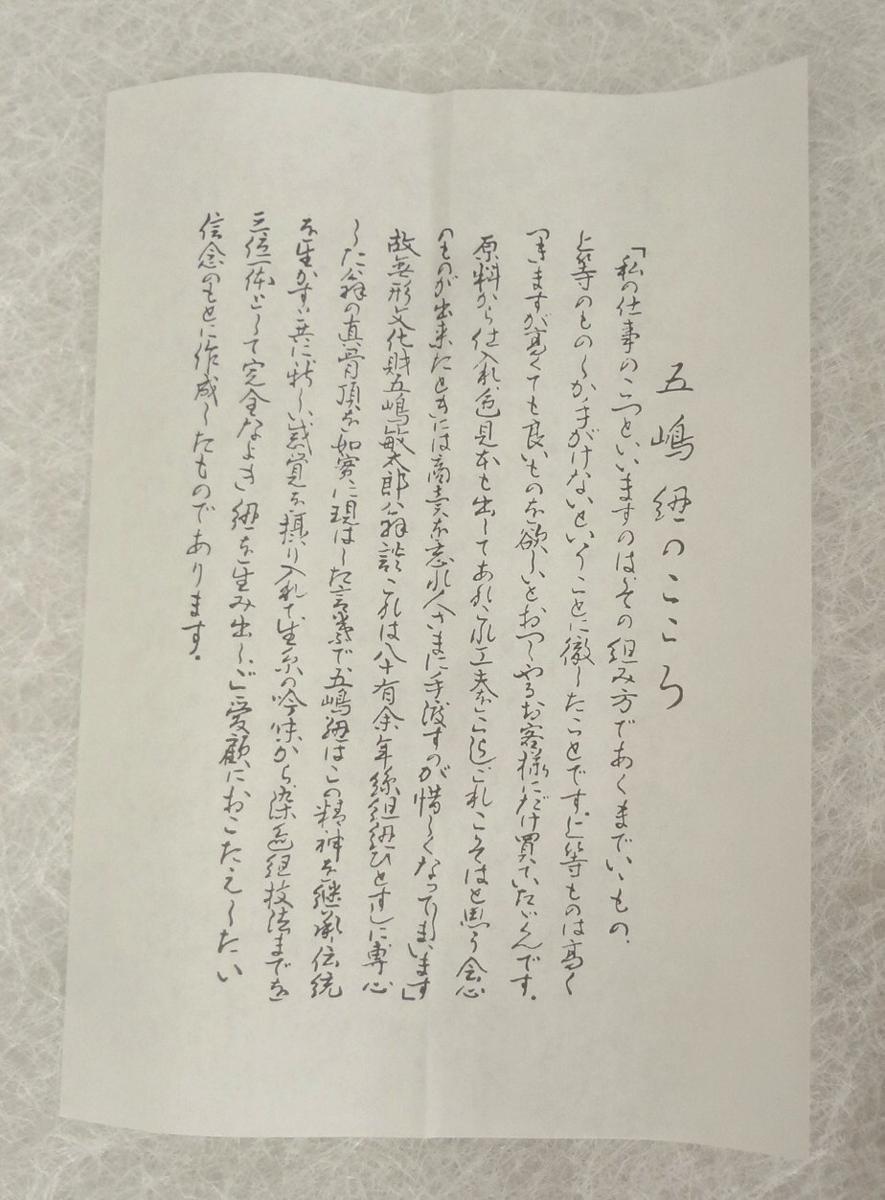 五嶋紐のこころ
「私の仕事のこつといいますのは、その組み方であくまでいいもの、
上等のものしか手がけないということに徹したことです。上等ものは高く
つきますが高くても良いものを欲しいとおっしゃるお客様にだけ買ていただくんです。
原料から仕入れ色見本も出してあれこれ工夫をこらしこれこそはと思う会心
のものが出来たときには商売を忘れ人さまに手渡すのが惜しくなってしまいます」
故無形文化財五嶋敏太郎翁談 これは八十有余年絲組紐ひとすじに専心
した翁の真骨頂を如実に現はした言葉で五嶋紐はこの精神を継承、伝統
を生かすと共に新しい感覚を摂り入れて生糸の吟味から染色組技法までを
三位一体として完全なよき紐を生み出しご愛顧におこたえしたい
信念のもとに作成したものであります。